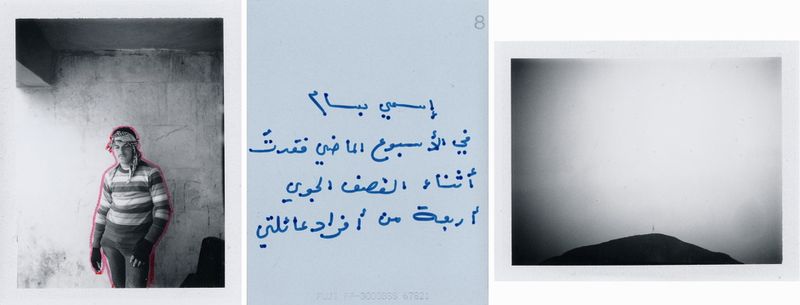 8
إسمي بسام
في الأسبوع الماضي فقدتُ
أثناء القصف الجوي
أربعة من أفراد عائلتي